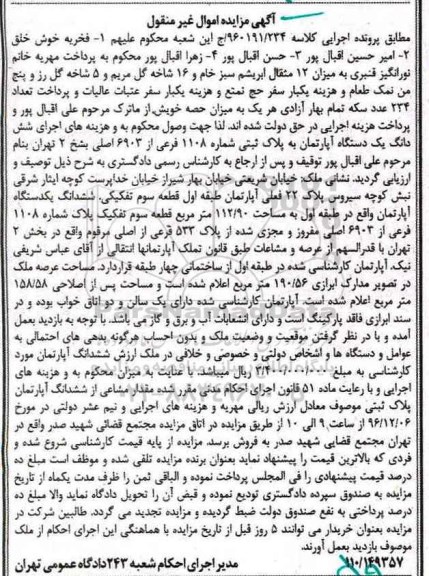 آگهی مزایده اموال غیر منقول
مطابق پرونده اجرایی کلاسه ۹۶۰۱۹۱/۲۳۴/ج این شعبه محکوم علیهم ۱- فخریه خوش خلق
۲- امیر حسین اقبال پور ۳- حسن اقبال پور ۴- زهرا اقبال پور محکوم به پرداخت مهریه خانم
نورانگیز قنبری به میزان ۱۲ مثقال ابریشم سبز خام و ۱۶ شاخه گل مریم و ۵ شاخه گل رز و پنج
من نمک طعام و هزینه یکبار سفر حج تمتع و هزینه یکبار سفر عتبات عالیات و پرداخت تعداد
۲۳۴ عدد سکه تمام بهار آزادی هر یک به میزان حصه خویش،از ماترک مرحوم علی اقبال پور و
پرداخت هزینه اجرایی در حق دولت شده اند. لذا جهت وصول محکوم به و هزینه های اجرای شش
دانگ یک دستگاه آپارتمان به پلاک ثبتی شماره ۱۱۰۸ فرعی از ۶۹۰۳ اصلی بشخ ۲ تهران بنام
مرحوم علی اقبال پور توقیف و پس از ارجاع به کارشناس رسمی دادگستری به شرح ذیل توصیف و
ارزیابی گردید. نشانی ملک: خیابان شریعتی خیابان بهار شیراز خیابان خداپرست کوچه ایثار شرقی
نبش کوچه سیروس پلاک ۲۷ فعلی آپارتمان طبقه اول قطعه سوم تفکیکی. ششدانگ یکدستگاه
آپارتمان واقع در طبقه اول به مساحت ۱۱۲/۹۰ متر مربع قطعه سوم تفکیک پلاک شماره ۱۱۰۸
فرعی از ۶۹۰۳ اصلی مفروز و مجزی شده از پلاک ۵۳۳ فرعی از اصلی مرقوم واقع در بخش ۲
تهران با قدرالسهم از عرصه و مشاعات طبق قانون تملک آپارتمانها انتقالی از آقای عباس شریفی
نیک. آپارتمان کارشناسی شده در طبقه اول از ساختمانی چهار طبقه قراردارد. مساحت عرصه ملک
در تصویر مدارک ابرازی ۱۹۰/۵۶ متر مربع اعلام شده است و مساحت پس از اصلاحی ۱۵۸/۵۸
متر مربع اعلام شده است. آپارتمان کارشناسی شده دارای یک سالن و دو اتاق خواب بوده و در
سند ابرازی فاقد پارکینگ است و دارای انشعابات آب و برق و گاز می باشد. با توجه به بازدید بعمل
آمده و با در نظر گرفتن موقعیت و وضعیت ملک و بدون احتساب هرگونه بدهی های احتمالی به
عوامل و دستگاه ها و اشخاص دولتی و خصوصی و خلافی در ملک ارزش ششدانگ آپارتمان مورد
کارشناسی به مبلغ ۳/۴۰۰/۰۰۰/۰۰۰ ریال میباشد. با عنایت به میزان محکوم به و هزینه های
اجرایی و با رعایت ماده ۵۱ قانون اجرای احکام مدنی مقرر شده مقدار مشاعی از ششدانگ آپارتمان
پلاک ثبتی موصوف معادل ارزش ریالی مهریه و هزینه های اجرایی و نیم عشر دولتی در مورخ
۹۶/۱۲/۰۶ از ساعت ۹ الی ۱۰ از طریق مزایده در اتاق مزایده مجتمع قضائی شهید صدر واقع در
تهران مجتمع قضایی شهید صدر به فروش برسد. مزایده از پایه قیمت کارشناسی شروع شده و
فردی که بالاترین قیمت را پیشنهاد نماید بعنوان برنده مزایده تلقی شده و موظف است مبلغ ده
درصد قیمت پیشنهادی را فی المجلس پرداخت نموده و الباقی ثمن را ظرف مدت یکماه از تاریخ
مزایده به صندوق سپرده دادگستری تودیع نموده و قبض آن را تحویل دادگاه نماید والا مبلغ ده
درصد پرداختی به نفع صندوق دولت ضبط گردیده و مزایده تجدید می گردد. طالبین شرکت در
مزایده بعنوان خریدار می توانند ۵ روز قبل از تاریخ مزایده با هماهنگی این اجرای احکام از ملک
موصوف بازدید بعمل آورند.
۱۱۰/۱۴۹۳۵۷ مدیر اجرای احکام شعبه ۲۴۳ دادگاه عمومی تهران